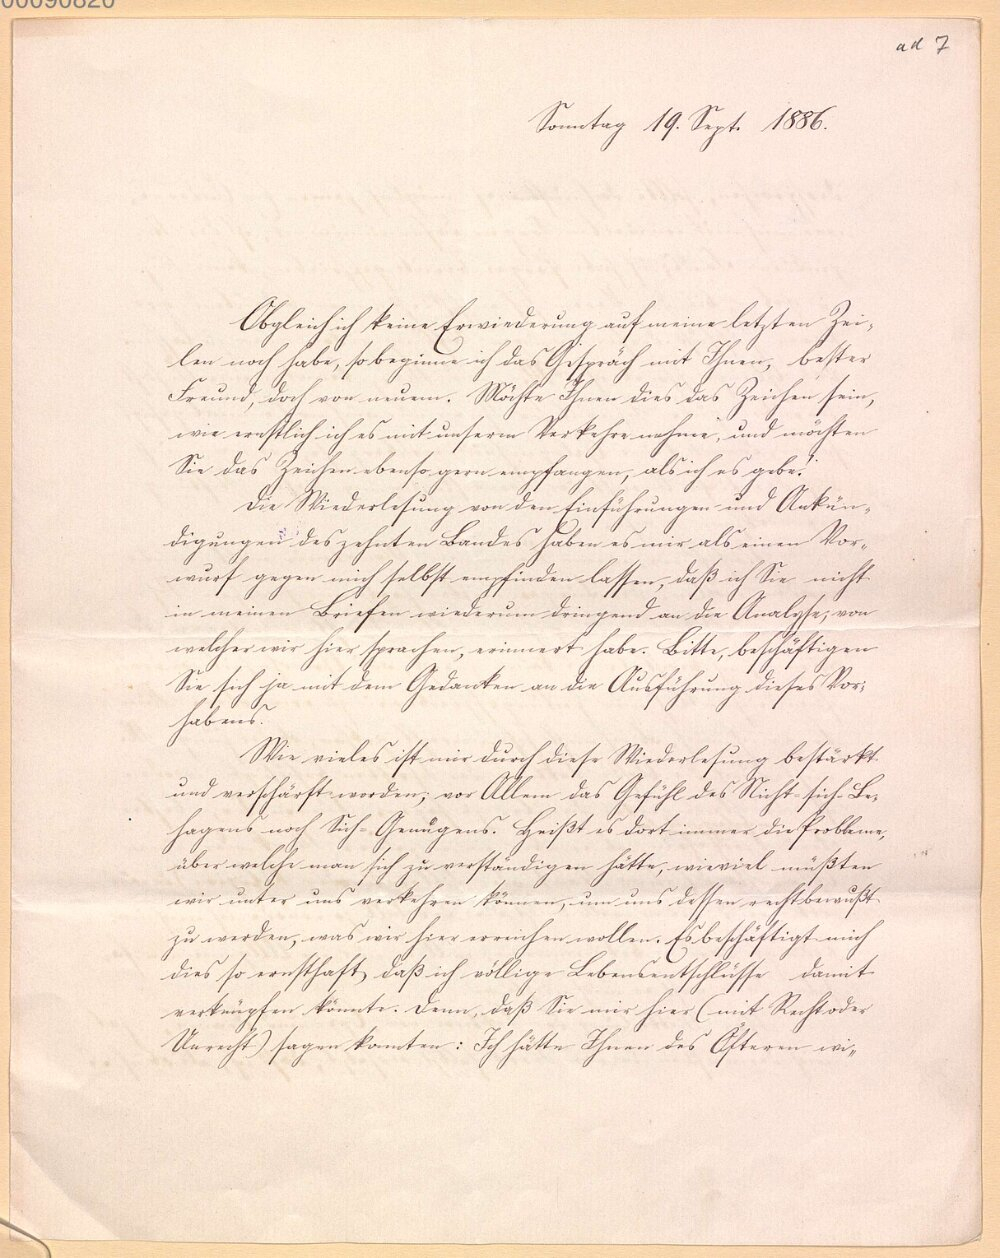 00090820
ad 7
Sonntag 19. Sept. 1886.
Obgleich ich keine Erwiederung auf meine letzten Zei-
len noch habe, so beginne ich das Gespräch mit Ihnen, bester
Freund, doch von neuem. Möchte Ihnen dies das Zeichen sein,
wie ernstlich ich es mit unserm Verkehre nehme, und möchten
Sie das Zeichen ebenso gern empfangen, als ich es gebe!
Die Wiederlesung von den Einführungen und Ankün-
digungen des zehnten Bandes haben es mir als einen Vor-
wurf gegen mich selbst empfinden lassen, daß ich Sie nicht
in meinen Briefen wiederum dringend an die Analyse, von
welcher wir hier sprachen, erinnert habe. Bitte, beschäftigen
Sie sich ja mit dem Gedanken an die Ausführung dieses Vor-
habens.
Wie vieles ist mir durch diese Wiederlesung bestärkt
und verschärft worden; vor Allem das Gefühl des Nicht-sich-Be-
hagens noch Sich-Genügens. Heißt es dort immer die Probleme,
über welche man sich zu verständigen hätte, wieviel müßten
wir unter uns verkehren können, um uns dessen recht bewußt
zu werden, was wir hier erreichen wollen. Es beschäftigt mich
dies so ernsthaft, daß ich völlige Lebensentschlüsse damit
verknüpfen könnte. Denn, daß Sie mir hier (mit Recht oder
Unrecht) sagen konnten: Ich hätte Ihnen des Öfteren wi-